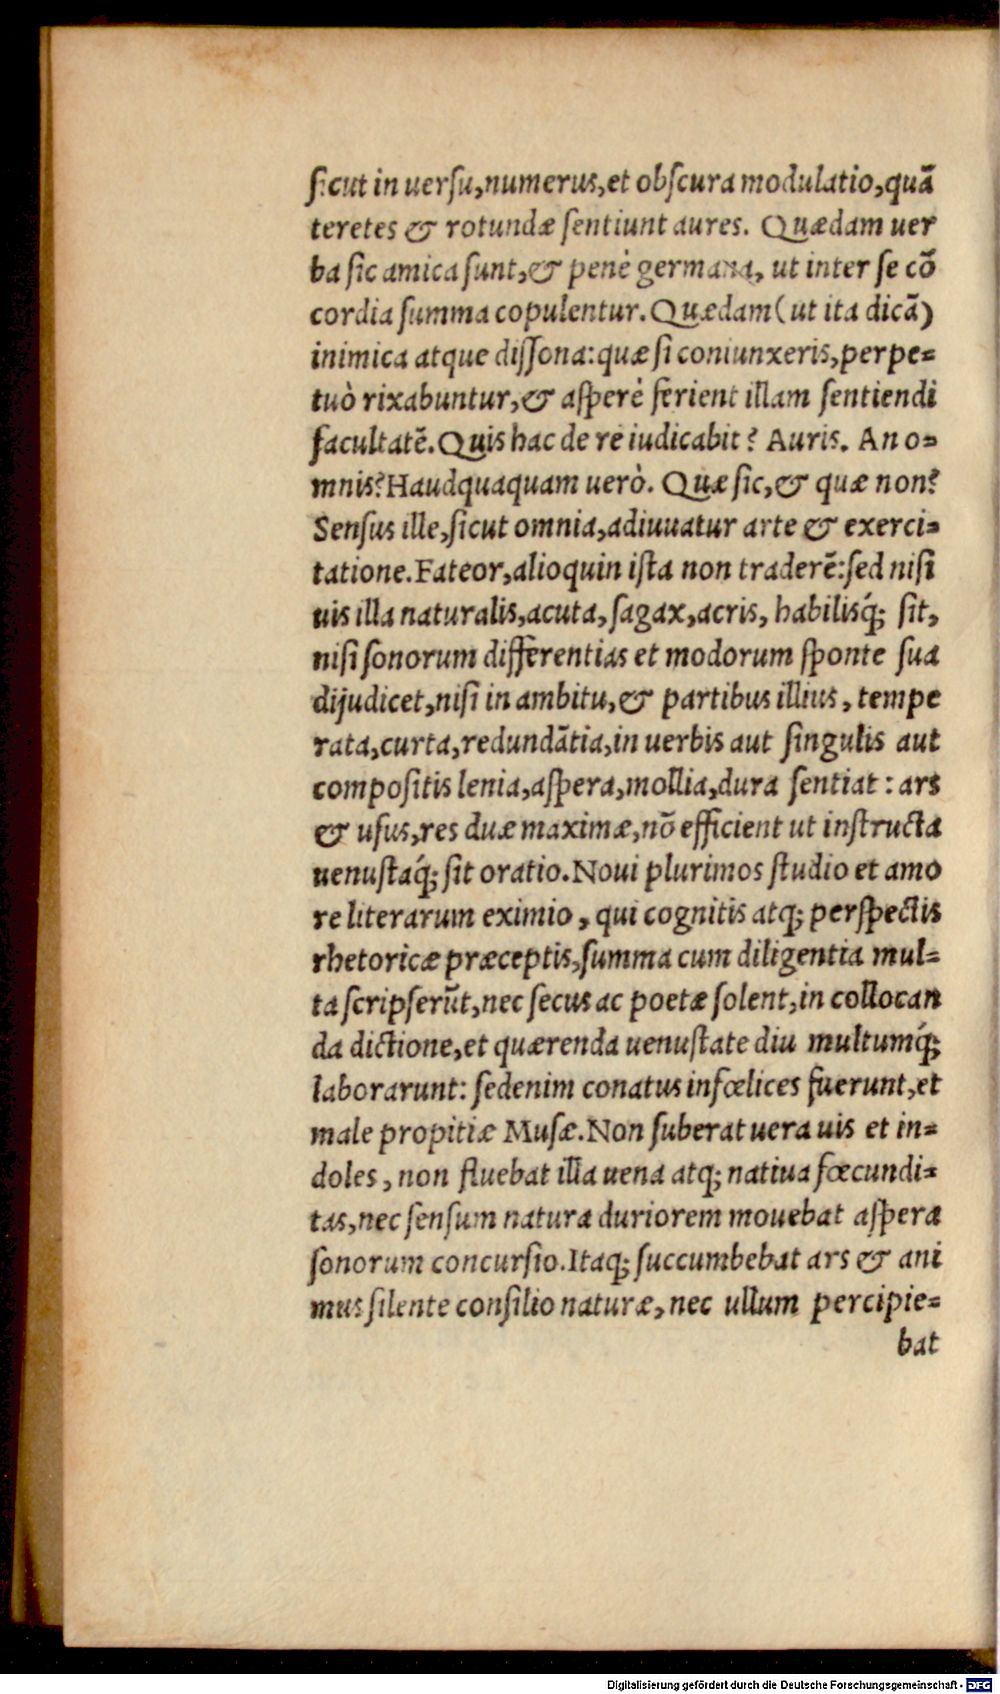 sicut in uersu, numerus, et obscura modulatio, quã
teretes & rotundæ sentiunt aures. Quædam uer
ba sic amica sunt, & penè germana, ut inter se cõ
cordia summa copulentur. Quædam (ut ita dicã)
inimica atque dissona: quæ si coniunxeris, perpe=
tuò rixabuntur, & asperè ferient illam sentiendi
facultatẽ. Quis hac de re iudicabit? Auris. An o=
mnis? Haudquaquam uerò. Quæ sic, & quæ non?
Sensus ille, sicut omnia, adiuuatur arte & exerci=
tatione. Fateor, alioquin ista non traderẽ: sed nisi
uis illa naturalis, acuta, sagax, acris, habilisq́; sit,
nisi sonorum differentias et modorum sponte sua
dijudicet, nisi in ambitu, & partibus illius, tempe
rata, curta, redundãtia, in uerbis aut singulis aut
compositis lenia, aspera, mollia, dura sentiat: ars
& usus, res duæ maximæ, nõ efficient ut instructa
uenustaq́; sit oratio. Noui plurimos studio et amo
re literarum eximio, qui cognitis atq; perspectis
rhetoricæ præceptis, summa cum diligentia mul=
ta scripserũt, nec secus ac poetæ solent, in collocan
da dictione, et quærenda uenustate diu multumq́;
laborarunt: sedenim conatus infœlices fuerunt, et
male propitiæ Musæ. Non suberat uera uis et in=
doles, non fluebat illa uena atq; natiua fœcundi=
tas, nec sensum natura duriorem mouebat aspera
sonorum concursio. Itaq; succumbebat ars & ani
mus silente consilio naturæ, nec ullum percipie=
bat
Digitalisierung gefördert durch die Deutsche Forschungsgemeinschaft - DFG